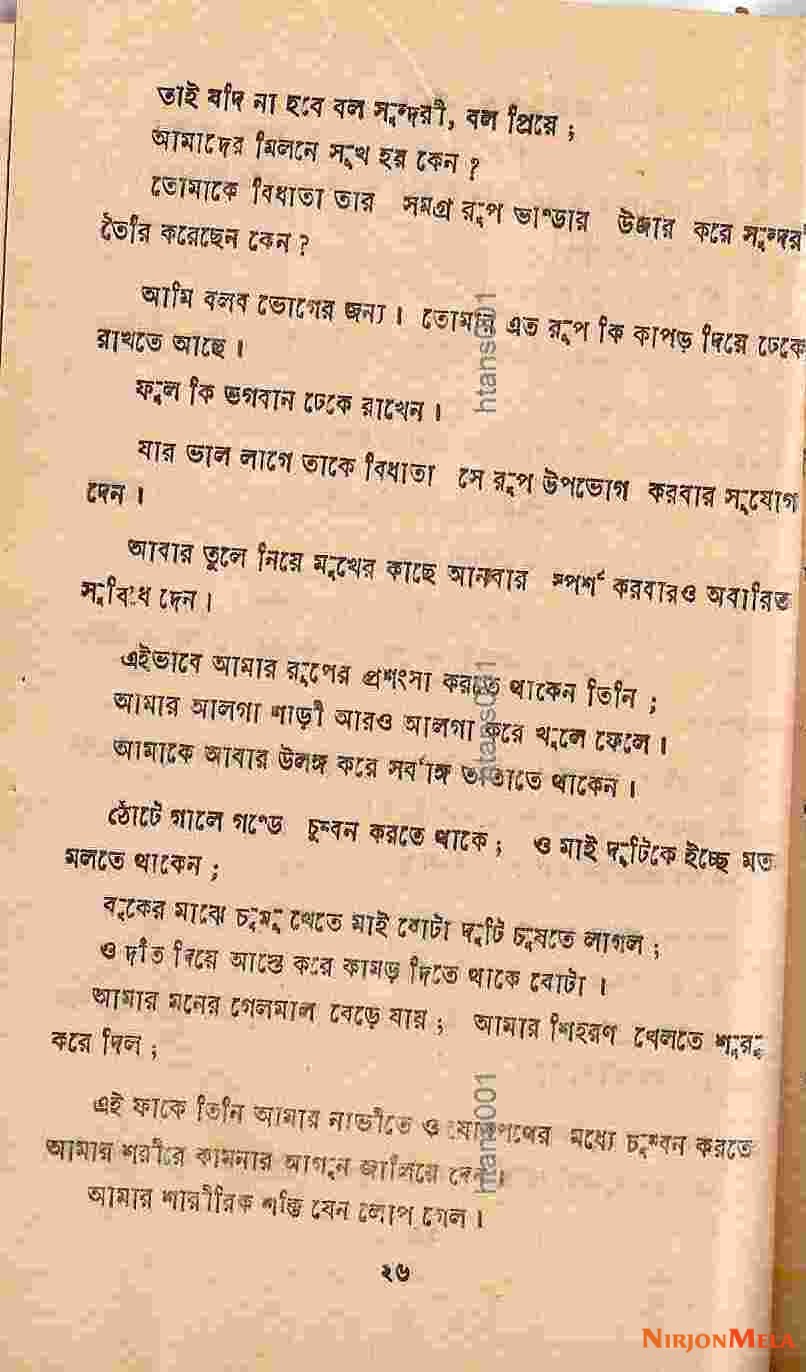 তাই যদি না হবে বল সুন্দরী, বল প্রিয়ে ;
আমাদের মিলনে সুখ হয় কেন ?
তোমাকে বিধাতা তার সমগ্র রূপ ভাণ্ডার উজার করে সুন্দর
তৈরি করেছেন কেন ?
আমি বলব ভোগের জন্য । এত রূপ কি কাপড় দিয়ে ঢেকে
রাখতে আছে ।
ফুল কি ভগবান ঢেকে রাখেন ।
যার ভাল লাগে তাকে বিধাতা সে রূপ উপভোগ করবার সুযোগ
দেন ।
আবার তুলে নিয়ে মুখের কাছে আনবার স্পর্শ করবারও অবারিত
সুবিধে দেন ।
এইভাবে আমার রূপের প্রশংসা করতে থাকেন তিনি ;
আমার আলগা শাড়ী আরও আলগা করে খুলে ফেলে ।
আমাকে আবার উলঙ্গ করে সর্বাঙ্গ তাতাতে থাকেন ।
ঠোটে গালে গণ্ডে চুম্বন করতে থাকে ; ও মাই দুটিকে ইচ্ছে মত
মলতে থাকেন ;
বুকের মাঝে চুমু খেতে মাই বোটা দুটি চুষতে লাগল ;
ও দাঁত দিয়ে আস্তে করে কামড় দিতে থাকে বোটা ।
আমার মনের গেলমাল বেড়ে যায় ; আমার শিহরণ খেলতে শুরু
করে দিল ;
এই ফাকে তিনি আমার নাভীতে ও মধ্যে চুম্বন করতে
আমার শরীরে কামনার আগুন জালিয়ে দেন ।
আমার শারীরিক শক্তি যেন লোপ গেল ।
২৬
htans001
htans001
htans001
NIRJONMELA